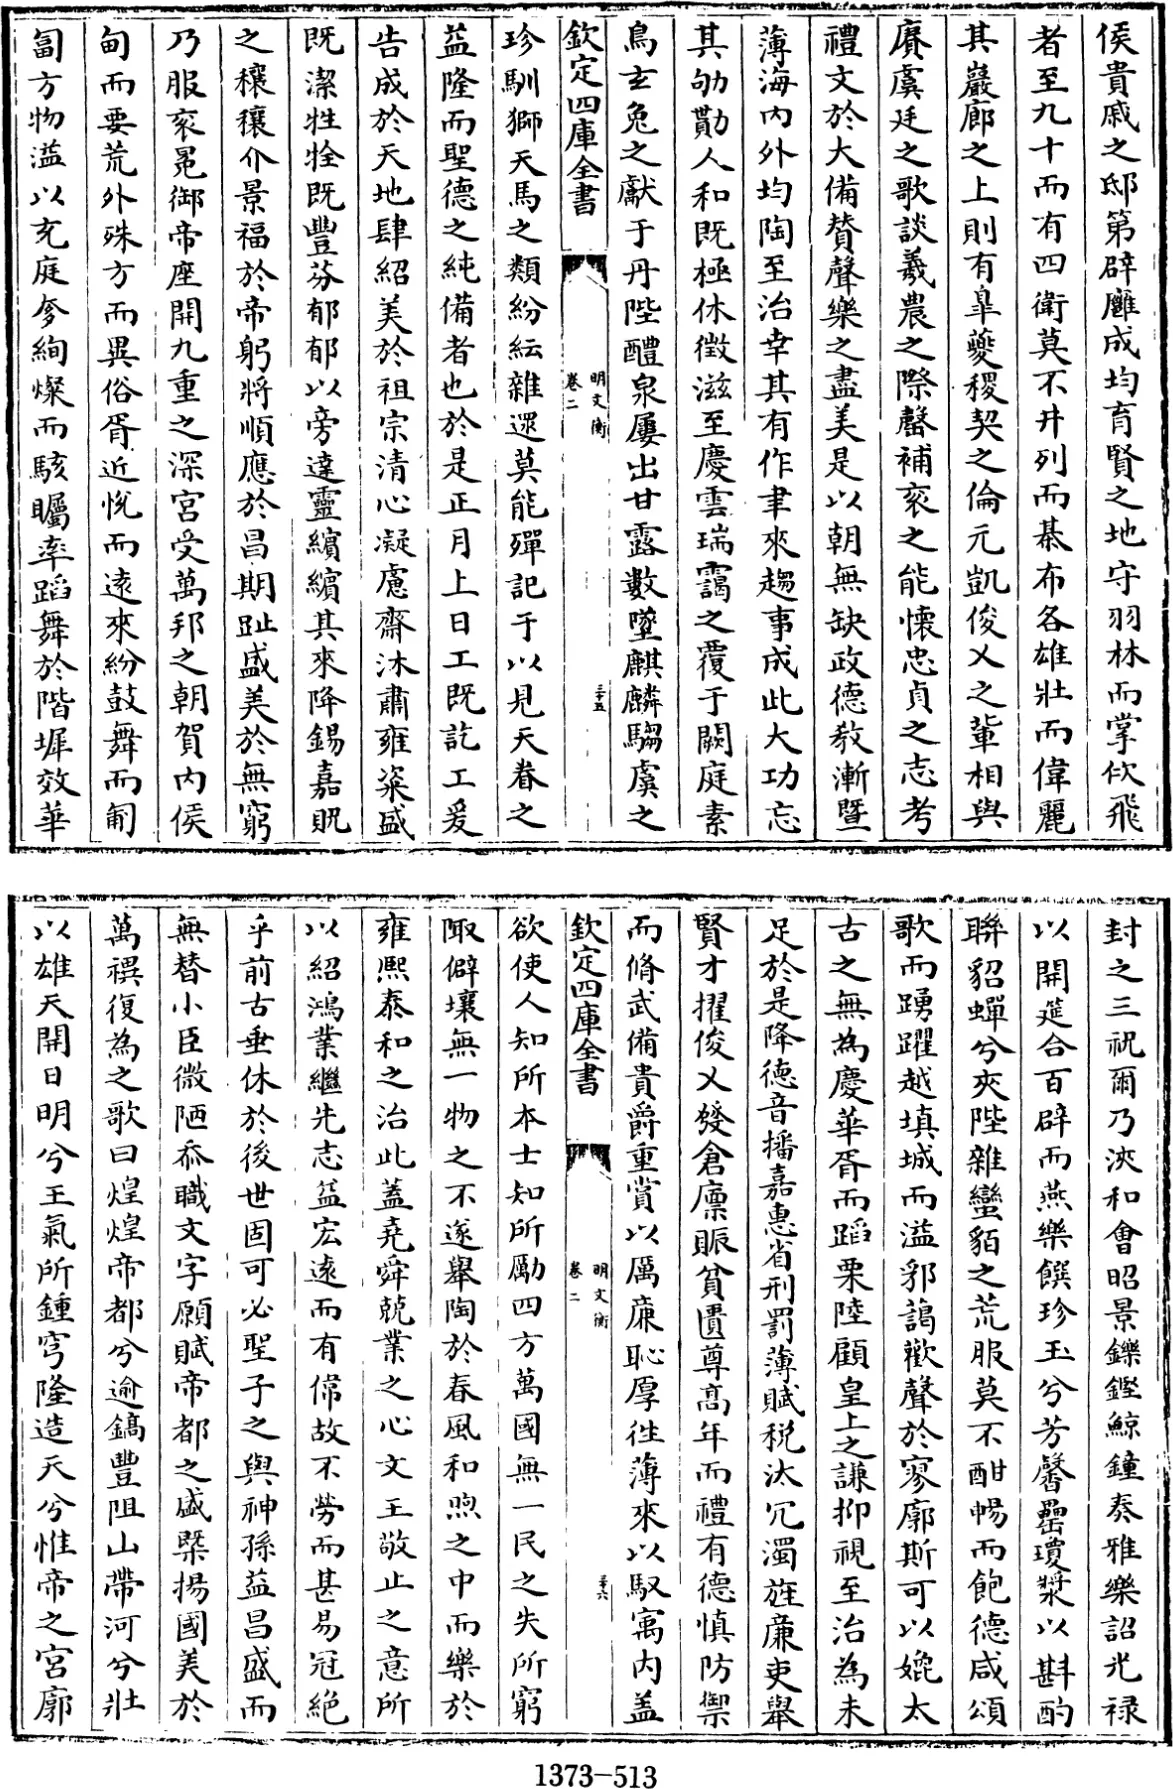 侯貴戚之邸第辟廱成均育賢之地守羽林而掌佽飛
者至九十而有四衛莫不井列而棊布各雄壯而偉麗
其巖廊之上則有臯夔稷契之倫元凱俊乂之輩相與
賡虞廷之歌談羲農之際罄補衮之能懷忠貞之志考
禮文於大備賛聲樂之盡美是以朝無缺政德敎漸暨
薄海内外均陶至治幸其有作聿來趨事成此大功忘
其劬勩人和既極休徴滋至慶雲瑞靄之覆于闕庭素
鳥玄兔之獻于丹陛醴泉屢出甘露數墜麒麟騶虞之
欽定四庫全書
明文衡
卷二
三十五
珍馴獅天馬之類紛紜雜遝莫能殫記于以見天眷之
益隆而聖德之純備者也於是正月上日工既訖工爰
告成於天地肆紹美於祖宗清心凝慮齋沐肅雍粢盛
既潔牲牷既豐芬郁郁以旁達靈繽繽其來降錫嘉貺
之穰穰介景福於帝躬將順應於昌期趾盛美於無窮
乃服衮冕御帝座開九重之深宮受萬邦之朝賀内侯
甸而要荒外殊方而異俗胥近恱而遠來紛鼓舞而匍
匐方物溢以充庭奓絢燦而駭矚率蹈舞於階墀效華
封之三祝爾乃浹和會昭景鑠鏗鯨鐘奏雅樂詔光禄
以開筵合百辟而燕樂饌珍玉兮芳馨罍瓊漿以斟酌
聯貂蟬兮夾陛雜蠻貊之荒服莫不酣暢而飽德咸頌
歌而踴躍越填城而溢郛藹歡聲於寥廓斯可以媲太
古之無為慶華胥而蹈栗陸顧皇上之謙抑視至治為未
足於是降德音播嘉惠省刑罰薄賦稅汰冗濁旌廉吏舉
賢才擢俊乂發倉廪賑貧匱尊高年而禮有德慎防禦
而脩武備貴爵重賞以厲廉恥厚徃薄來以馭寓内盖
欽定四庫全書
明文衡
卷二
三十六
欲使人知所本士知所勵四方萬國無一民之失所窮
陬僻壤無一物之不遂舉陶於春風和煦之中而樂於
雍熙泰和之治此蓋堯舜兢業之心文王敬止之意所
以紹鴻業繼先志益宏遠而有偹故不勞而甚易冠絶
乎前古垂休於後世固可必聖子之與神孫益昌盛而
無替小臣微陋忝職文字願賦帝都之盛槩揚國美於
萬禩復為之歌曰煌煌帝都兮逾鎬豐阻山帶河兮壯
以雄天開日明兮王氣所鍾穹隆造天兮惟帝之宮廓
1373-513